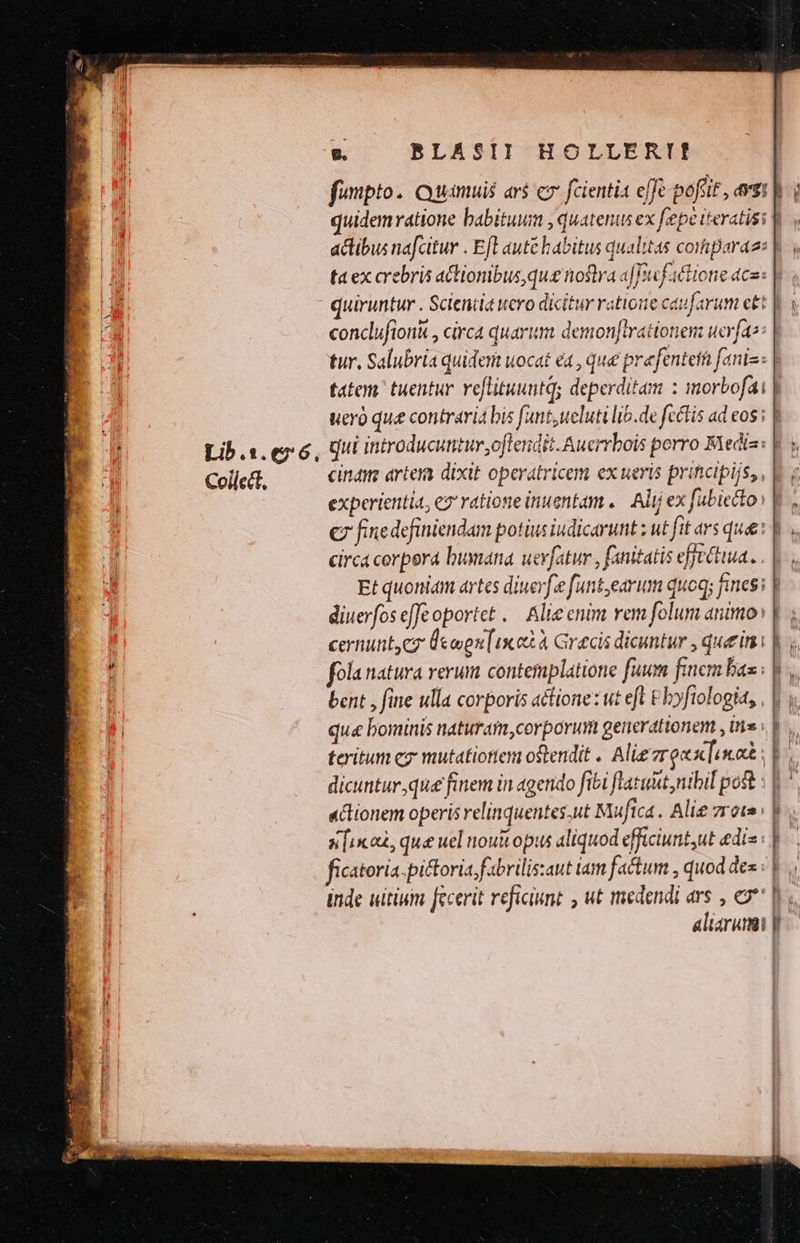 8. BLASII HOLLERII
sumpto. Quamuis ars & scientia esse possit, ars
quidem ratione habituum, quatenus ex sæpe iteratis
actibus nascitur. Est autē habitus qualitas compara=
ta ex crebris actionibus, quæ nostra assuefactione ac=
quiruntur. Scientia uero dicitur ratione causarum et
conclusionū, circa quarum demonstrationem uersa=
tur. Salubria quidem uocat ea, quæ præsentem sani=
tatem tuentur restituuntq; deperditam: morbosa
uerò quæ contraria his sunt, ueluti lib. de sectis ad eos
Lib.1. & 6, qui introducuntur, ostendit. Auerrhois porro Medi=
Collect. cinam artem dixit operatricem ex ueris principijs,
experientia, & ratione inuentam. Alij ex subiecto
& fine definiendam potius iudicarunt: ut sit ars quæ
circa corpora humana uersatur, sanitatis effectiua.
Et quoniam artes diuersæ sunt, earum quoq; fines
diuersos esse oportet. Aliæ enim rem solum animo
cernunt, & θεωρητικαὶ à Græcis dicuntur, quæ in
sola natura rerum contemplatione suum finem ha=
bent, sine ulla corporis actione: ut est Physiologia,
quæ hominis naturam, corporum generationem, in=
teritum & mutationem ostendit. Aliæ πρακτικαὶ
dicuntur, quæ finem in agendo sibi statuūt, nihil post
actionem operis relinquentes. ut Musica. Aliæ ποιη=
τικαὶ, quæ uel nouū opus aliquod efficiunt, ut ædi=
ficatoria. pictoria, fabrilis: aut iam factum, quod de=
inde uitium fecerit reficiunt, ut medendi ars, &
aliarum